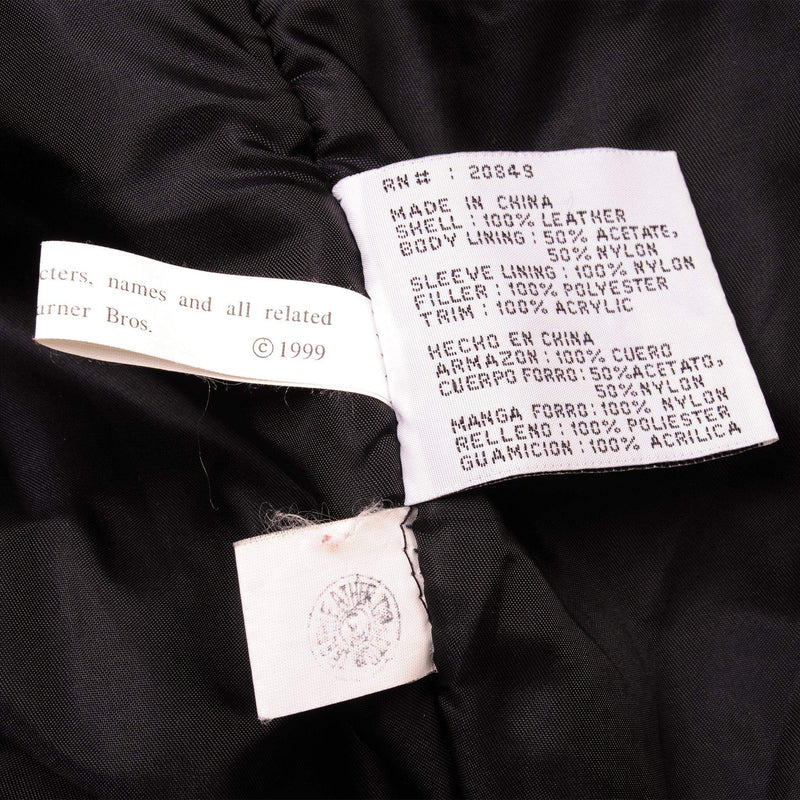 cters, names and all related
arner Bros.
© 1999
RN# : 20849
MADE IN CHINA
SHELL : 100% LEATHER
BODY LINING : 50% ACETATE,
50% NYLON
SLEEVE LINING : 100% NYLON
FILLER : 100% POLYESTER
TRIM : 100% ACRYLIC
HECHO EN CHINA
ARMAZON : 100% CUERO
CUERPO FORRO : 50% ACETATO,
50% NYLON
MANGA FORRO : 100% NYLON
RELLENO : 100% POLIESTER
GUAMICION : 100% ACRILICA